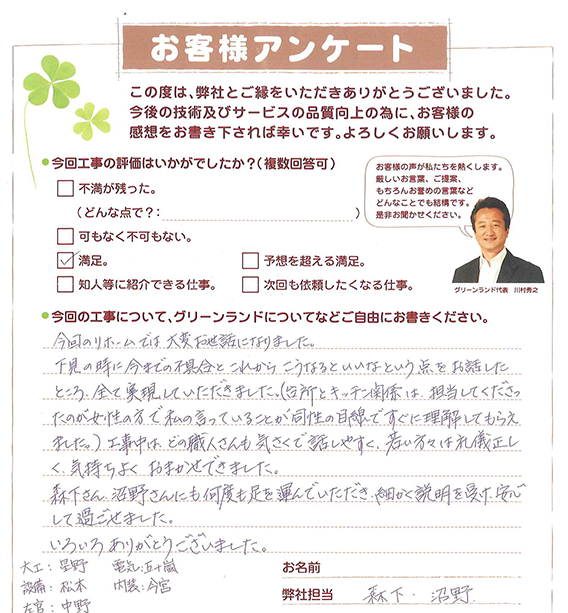 お客様アンケート
この度は、弊社とご縁をいただきありがとうございました。
今後の技術及びサービスの品質向上の為に、お客様の
感想をお書き下されば幸いです。よろしくお願いします。
今回工事の評価はいかがでしたか？（複数回答可）
不満が残った。
（どんな点で？：　）
可もなく不可もない。
満足。
予想を超える満足。
知人等に紹介できる仕事。
次回も依頼したくなる仕事。
お客様の声が私たちを熱くします。
厳しいお言葉、ご提案、
もちろんお誉めの言葉など
どんなことでも結構です。
是非お聞かせください。
グリーンランド代表　川村秀之
今回の工事について、グリーンランドについてなどご自由にお書きください。
今回のリホームでは大変お世話になりました。
下見の時に今までの不具合とこれからこうなるといいなという点をお話した
ところ、全て実現していただきました。（台所とキッチン関係は、担当してくださっ
たのが女性の方で私の言っていることが同性の目線ですぐに理解してもらえ
ました。）工事中は、どの職人さんも気さくで話しやすく、若い方々は礼儀正し
く、気持ちよくおまかせできました。
森下さん、沼野さんにも何度も足を運んでいただき、細かく説明を受け、安心
して過ごせました。
いろいろありがとうございました。
大工：星野　電気：五十嵐
設備：松本　内装：今宮
左官：中野
お名前
弊社担当　森下・沼野